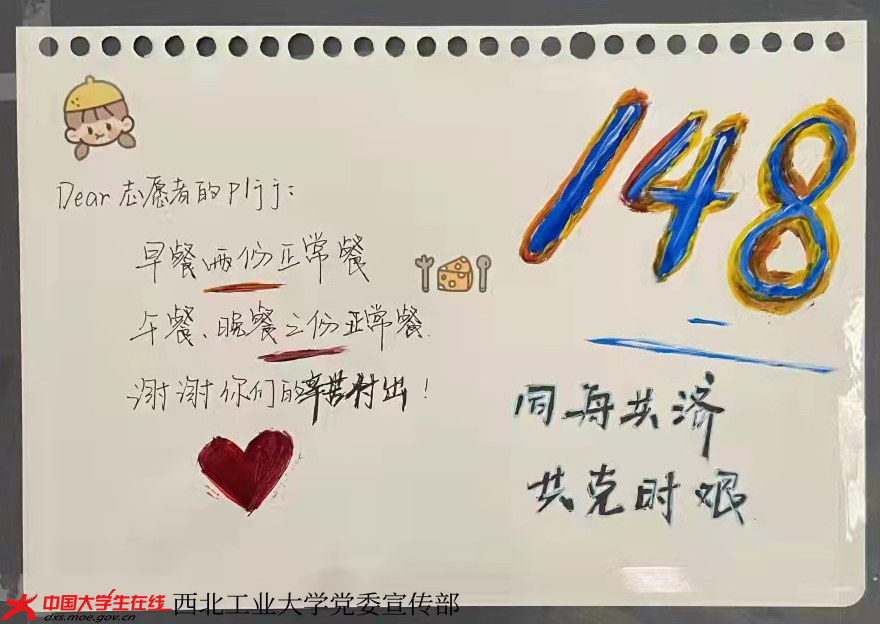 Dear 志愿者的pljj:
早餐两份正常餐
午餐、晚餐三份正常餐.
谢谢你们的辛苦付出!
148
同舟共济
共克时艰
中国大学生在线
dxs.moe.gov.cn
西北工业大学党委宣传部